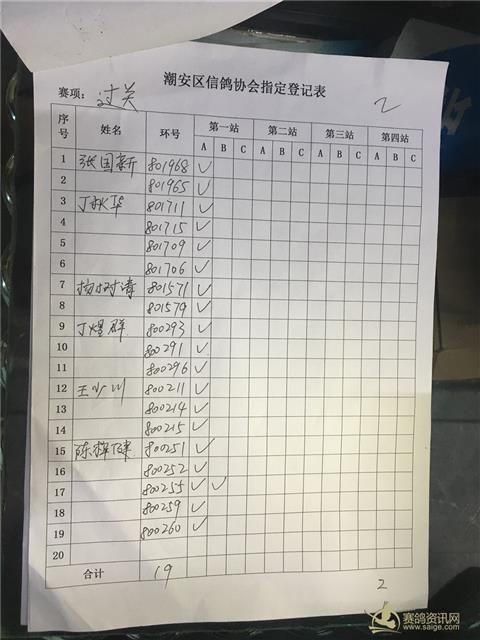 潮安区信鸽协会指定登记表
赛项：过关 2
序号 姓名 环号 第一站 第二站 第三站 第四站
A B C A B C A B C A B C
1 张国新 801968 ✓
2 801965 ✓
3 丁秋华 801711 ✓
4 801715 ✓
5 801709 ✓
6 801706 ✓
7 801571 ✓
8 801579 ✓
9 丁煜群 800293 ✓
10 800291 ✓
11 800296 ✓
12 王少川 800211 ✓
13 800214 ✓
14 800215 ✓
15 800251 ✓
16 800252 ✓
17 800255 ✓ ✓
18 800259 ✓
19 800260 ✓
20
合计 19
2
赛鸽资讯网
www.saige.com